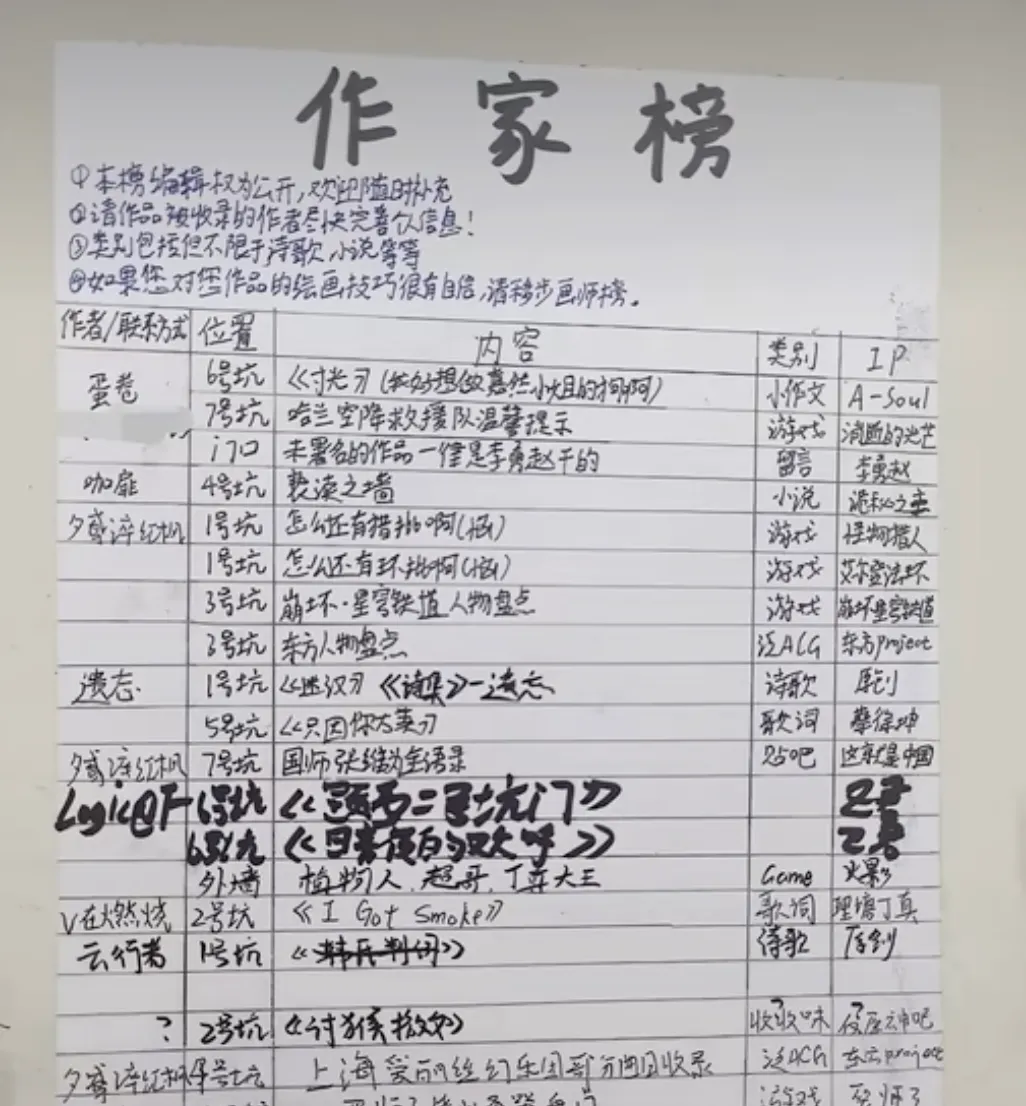 作家榜
①本榜编辑权为公开,欢迎随时补充
②请作品被收录的作者尽快完善个人信息!
③类别包括但不限于诗歌,小说等等
④如果您对您作品的绘画技巧很有自信,请移步画师榜。
作者/联系方式 位置 内容 类别 IP
蛋卷 6号坑 《忖光》(我好想做嘉然小姐的狗啊) 小作文 A-Soul
7号坑 哈兰空降救援队温馨提示 游戏 消逝的光芒
门口 未署名的作品一律是李勇赵干的 留言 李勇赵
咖扉 4号坑 亵渎之墙 小说 诡秘之主
夕鸢淬红枫 1号坑 怎么还有猎批啊(恼) 游戏 怪物猎人
1号坑 怎么还有环批啊(恼) 游戏 艾尔登法环
3号坑 崩坏·星穹铁道 人物盘点 游戏 崩坏星穹铁道
3号坑 东方人物盘点 泛ACG 东方Project
遗志 1号坑 《迷汉》《诗集》—遗志 诗歌 原创
5号坑 《只因你太美》 歌词 蔡徐坤
夕鸢淬红枫 7号坑 国师张维为金语录 贴吧 这就是中国
Logic@F 6号坑 《题西二号坑门》
6号坑
外墙 植物人,超哥,丁尊大王 Game 火影
V在燃烧 2号坑 《I Got Smoke》 歌词 理塘丁真
云行者 1号坑 诗歌 原创
? 2号坑 《讨猴檄文》
夕鸢淬红枫 4号坑 上海爱丽丝幻乐团 收录 泛ACG 东方project
游戏